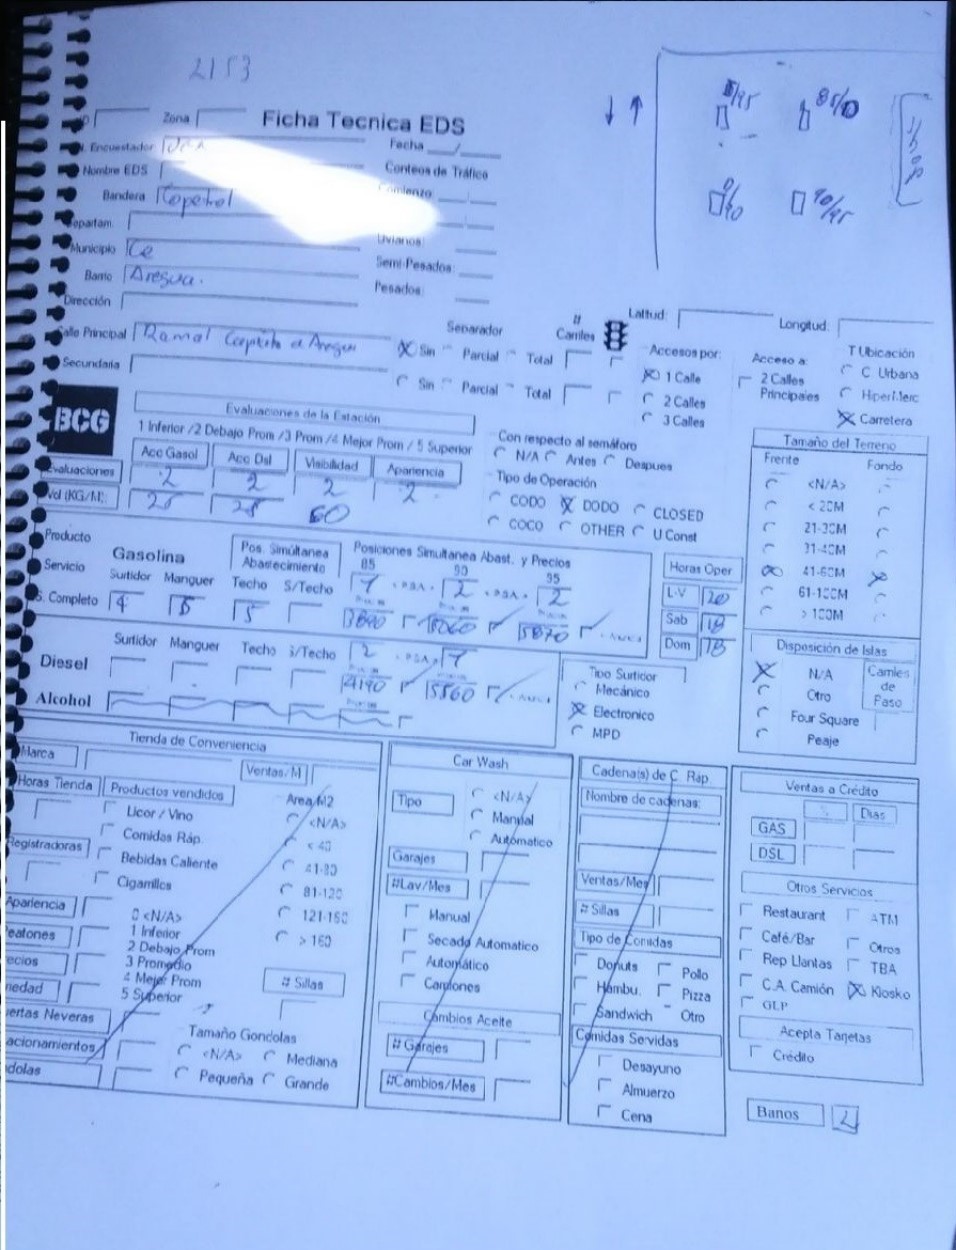 2153
Zona Ficha Tecnica EDS
Encuestador Fecha
Nombre EDS Conteos de Tráfico
Bandera Copetrol Comienzo
Departam.
Municipio Ce Livianos:
Barrio Aregua. Semi-Pesados:
Dirección Pesados:
85/10
90/95
Shop
Calle Principal Ramal Capiata a Aregua Separador # Carriles Latitud: Longitud:
Sin Parcial Total Accesos por: Acceso a: T Ubicación
Secundaria Sin Parcial Total 1 Calle 2 Calles Principales C. Urbana
2 Calles HiperMerc
3 Calles Carretera
BCG Evaluaciones de la Estación
1 Inferior /2 Debajo Prom /3 Prom /4 Mejor Prom / 5 Superior
Acc Gasol Acc Dsl Visibilidad Apariencia
Evaluaciones 2 2 2 2
Vol (KG/M): 25 25 60
Con respecto al semáforo
N/A Antes Despues
Tipo de Operación
CODO DODO CLOSED
COCO OTHER U Const
Tamaño del Terreno
Frente Fondo
<N/A>
< 20M
21-30M
31-40M
41-60M
61-100M
> 100M
Producto Gasolina Pos. Simúltanea Abastecimiento Posiciones Simultanea Abast. y Precios
Servicio Surtidor Manguer Techo S/Techo 85 90 95
S. Completo 4 5 5 2 2
5060 5870
Horas Oper
L-V 20
Sab 18
Dom 18
Diesel Surtidor Manguer Techo S/Techo 2
4190 5560
Alcohol
Tipo Surtidor
Mecánico
Electronico
MPD
Disposición de Islas
N/A Carriles de Paso
Otro
Four Square
Peaje
Tienda de Conveniencia
Marca Ventas/M
Horas Tienda Productos vendidos Area M2
Licor / Vino <N/A>
Comidas Ráp. < 40
Registradoras Bebidas Caliente 41-80
Cigarrillos 81-120
Apariencia 0 <N/A> 121-160
1 Inferior > 160
2 Debajo Prom
3 Promedio
4 Mejor Prom # Sillas
5 Superior
Neveras
Tamaño Gondolas
<N/A> Mediana
Pequeña Grande
Car Wash
Tipo <N/A>
Manual
Automatico
Garajes
#Lav/Mes
Manual
Secado Automatico
Automático
Camiones
Cambios Aceite
# Garajes
#Cambios/Mes
Cadena(s) de C. Ráp.
Nombre de cadenas:
Ventas/Mes
# Sillas
Tipo de Comidas
Donuts Pollo
Hambu. Pizza
Sandwich Otro
Comidas Servidas
Desayuno
Almuerzo
Cena
Ventas a Crédito
% Dias
GAS
DSL
Otros Servicios
Restaurant ATM
Café/Bar Otros
Rep Llantas TBA
C.A. Camión Kiosko
GLP
Acepta Tarjetas
Crédito
Banos 2